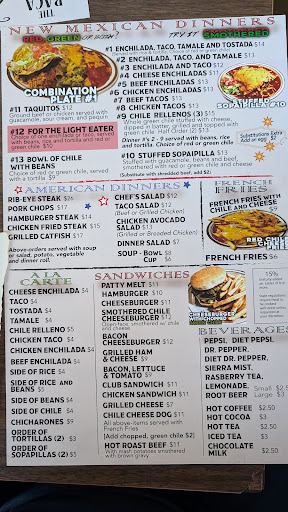 THE
BACA
NEW MEXICAN DINNERS
RED, GREEN OR BOTH! TRY IT SMOTHERED
#1 ENCHILADA, TACO, TAMALE AND TOSTADA $14
#2 ENCHILADA, TACO, AND TAMALE $11
#3 ENCHILADA AND TACO $12
#4 CHEESE ENCHILADAS $11
#5 BEEF ENCHILADAS $13
#6 CHICKEN ENCHILADAS $13
#7 BEEF TACOS $13
#8 CHICKEN TACOS $13
#9 CHILE RELLENOS (3) $15
Whole green chile stuffed with cheese,
dipped in batter, grilled and topped with
green chile. Half Order (2) $13
Dinner #'s 2 - 9 served with beans, rice
and tortilla. Choice of red or green chile
#10 STUFFED SOPAIPILLA $13
Stuffed with guacamole, beans and beef,
smothered with red or green chile and cheese
(Substitute with shredded beef, add $2)
COMBINATION
PLATE #1
STUFFED
SOPAIPILLA #10
Substitutions Extra
Add an egg!
$2
#11 TAQUITOS $12
Ground beef or chicken served with
guacamole, sour cream, and pequin
#12 FOR THE LIGHT EATER
Choice of one enchilada or taco, served
with beans, rice and tortilla and red or
green chile $10
#13 BOWL OF CHILE
WITH BEANS
Choice of red or green chile, served
with a tortilla $9
AMERICAN DINNERS
RIB-EYE STEAK $26
PORK CHOPS $17
HAMBURGER STEAK $14
CHICKEN FRIED STEAK $15
GRILLED CATFISH $17
Above-orders served with soup
or salad, potato, vegetable
and dinner roll.
CHEF'S SALAD $12
TACO SALAD $12
(Beef or Grilled Chicken)
CHICKEN AVOCADO
SALAD $13
(Grilled or Breaded Chicken)
DINNER SALAD $7
SOUP - BOWL $8
CUP $6
FRENCH
FRIES
FRENCH FRIES WITH
CHILE AND CHEESE
$9
FRENCH FRIES $6
A LA
CARTE
CHEESE ENCHILADA $4
TACO $4
TOSTADA $4
TAMALE $4
CHILE RELLENO $5
CHICKEN TACO $4
CHICKEN ENCHILADA $4
BEEF ENCHILADA $4
SIDE OF RICE $4
SIDE OF RICE AND
BEANS $5
SIDE OF BEANS $4
SIDE OF CHILE $4
CHICHARONES $9
ORDER OF
TORTILLAS (2) $3
ORDER OF
SOPAPILLAS (2) $5
SANDWICHES
PATTY MELT $11
HAMBURGER $10
CHEESEBURGER $11
SMOTHERED CHILE
CHEESEBURGER $12
Open-face, smothered w/ chile
and cheese
BACON
CHEESEBURGER $12
GRILLED HAM
& CHEESE $9
BACON, LETTUCE
& TOMATO $9
CLUB SANDWICH $11
CHICKEN SANDWICH $11
GRILLED CHEESE $7
CHILE CHEESE DOG $11
All above-items served with
French Fries
(Add chopped, green chile $2)
HOT ROAST BEEF $11
With mash potatoes smothered
with brown gravy.
CHEESEBURGER
15%
BEVERAGES
PEPSI, DIET PEPSI,
DR. PEPPER,
DIET DR. PEPPER,
SIERRA MIST,
RASBERRY TEA,
LEMONADE,
ROOT BEER
Small $2.50
Large
HOT COFFEE $2.50
HOT COCOA $3
HOT TEA $2.50
ICED TEA $3
CHOCOLATE
MILK $2.50